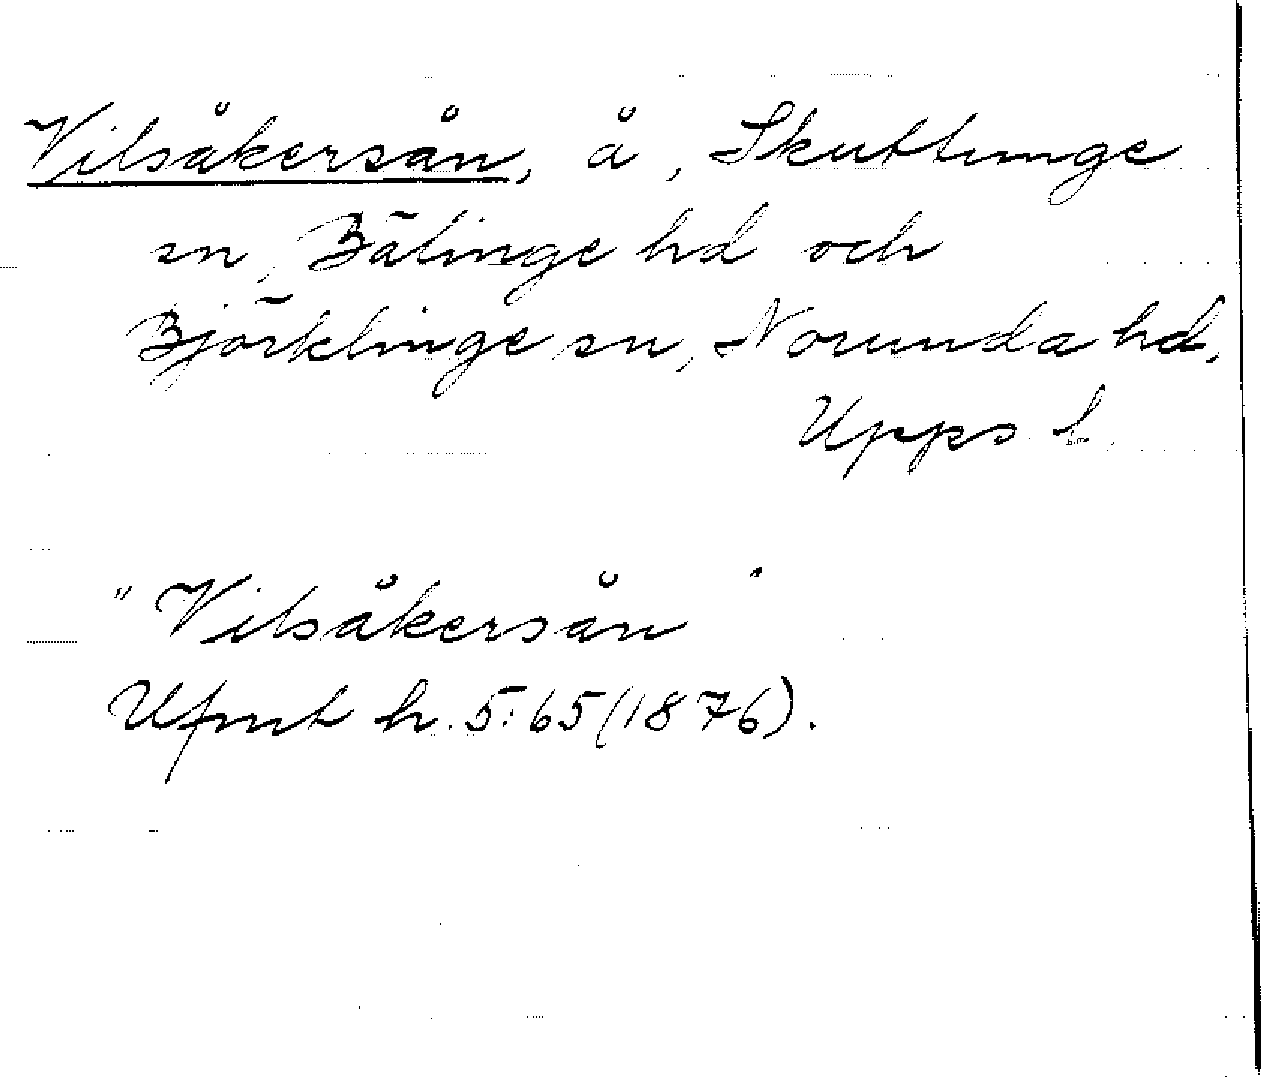 Vilsåkersån, å, Skuttunge
sn, Bälinge hd och
Björklinge sn, Norunda hd,
Upps l.
"Vilsåkersån"
Ufmt h. 5:65 (1876).